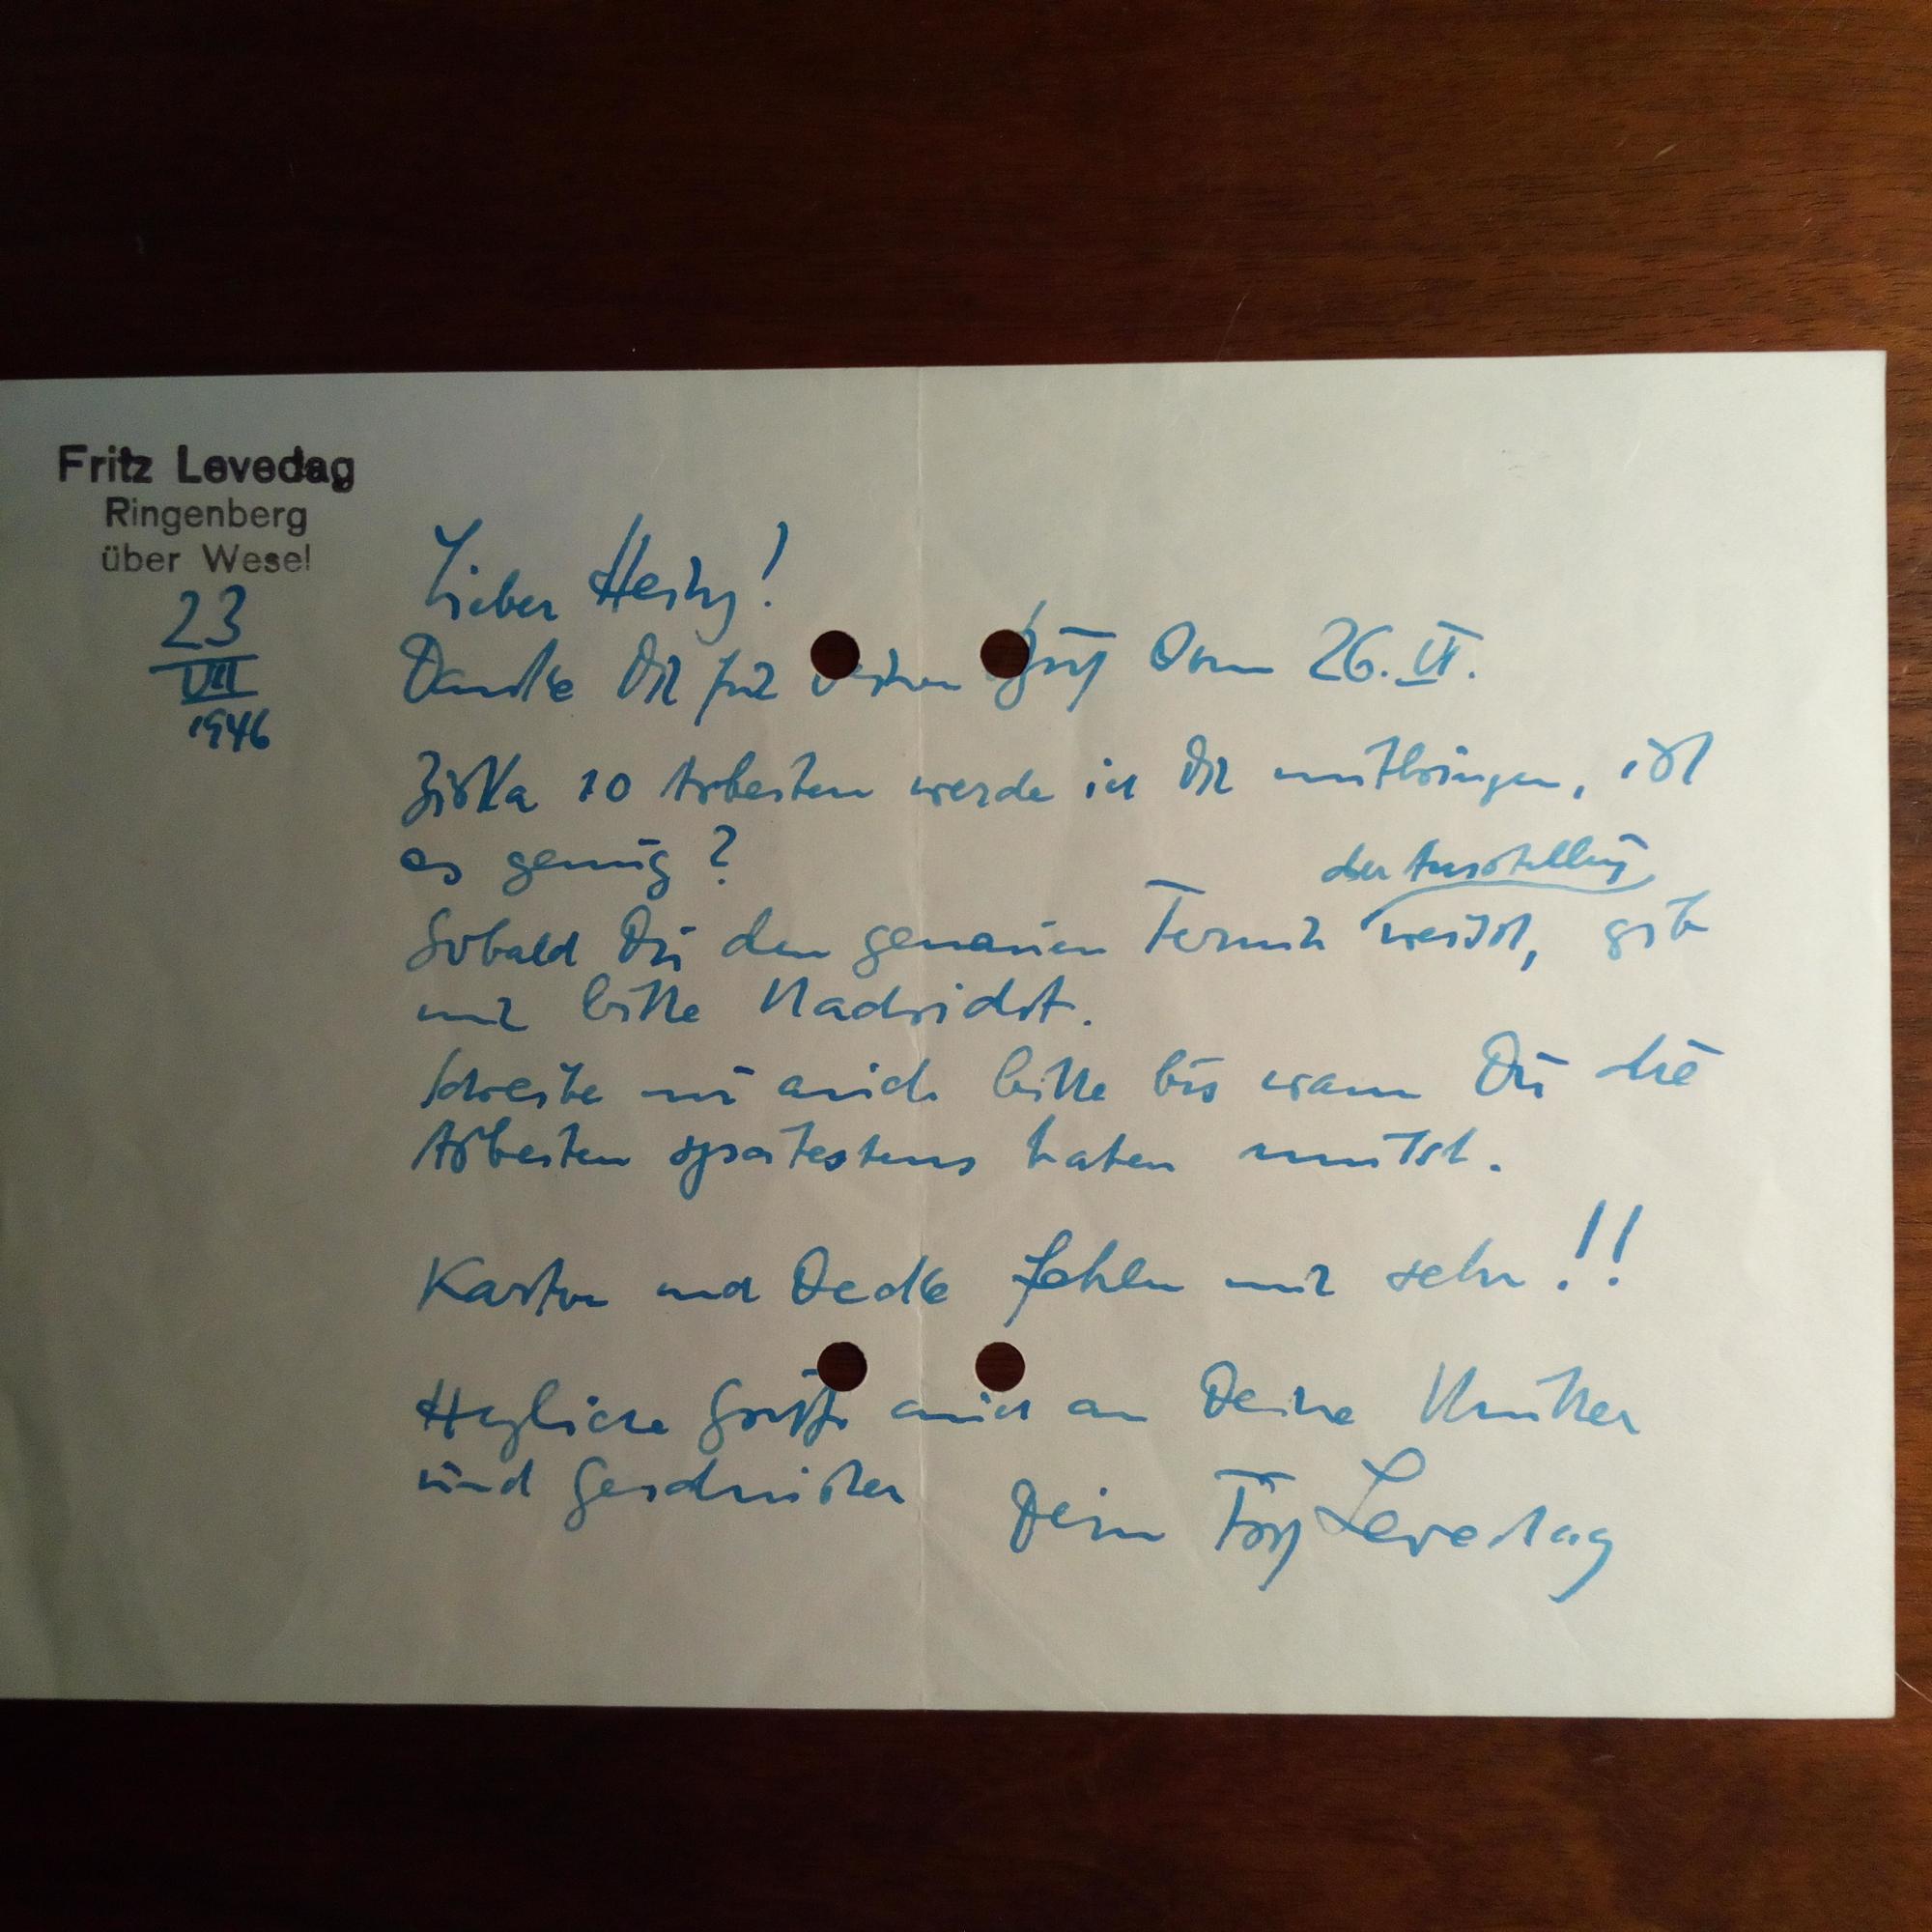 Fritz Levedag
Ringenberg
über Wesel
23
VIII
1946
Lieber Heinz!
Danke Dir für Deinen Gruß vom 26. VI.
Zirka 10 Arbeiten werde ich Dir mitbringen, ist
es genug?
der Ausstellung
Sobald Du den genauen Termin weisst, gib
mir bitte Nachricht.
Schreibe mir auch bitte bis wann Du die
Arbeiten spätestens haben mußt.
Karton und Decke fehlen mir sehr!!
Herzliche Grüße auch an Deine Mutter
und Geschwister Dein Fritz Levedag